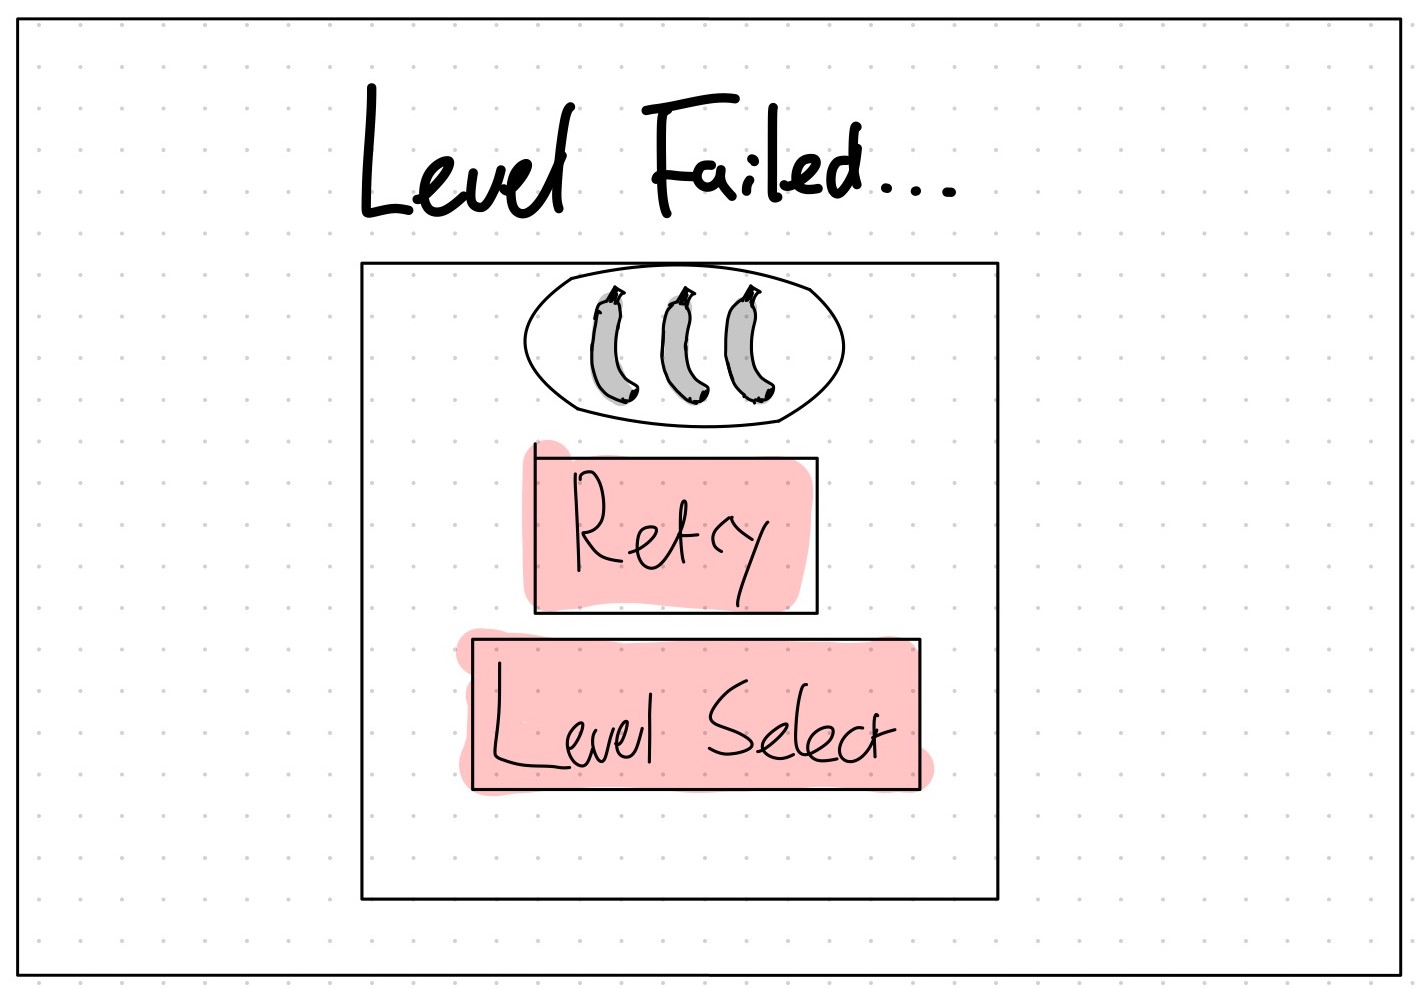 Level Failed...
Retry
Level Select